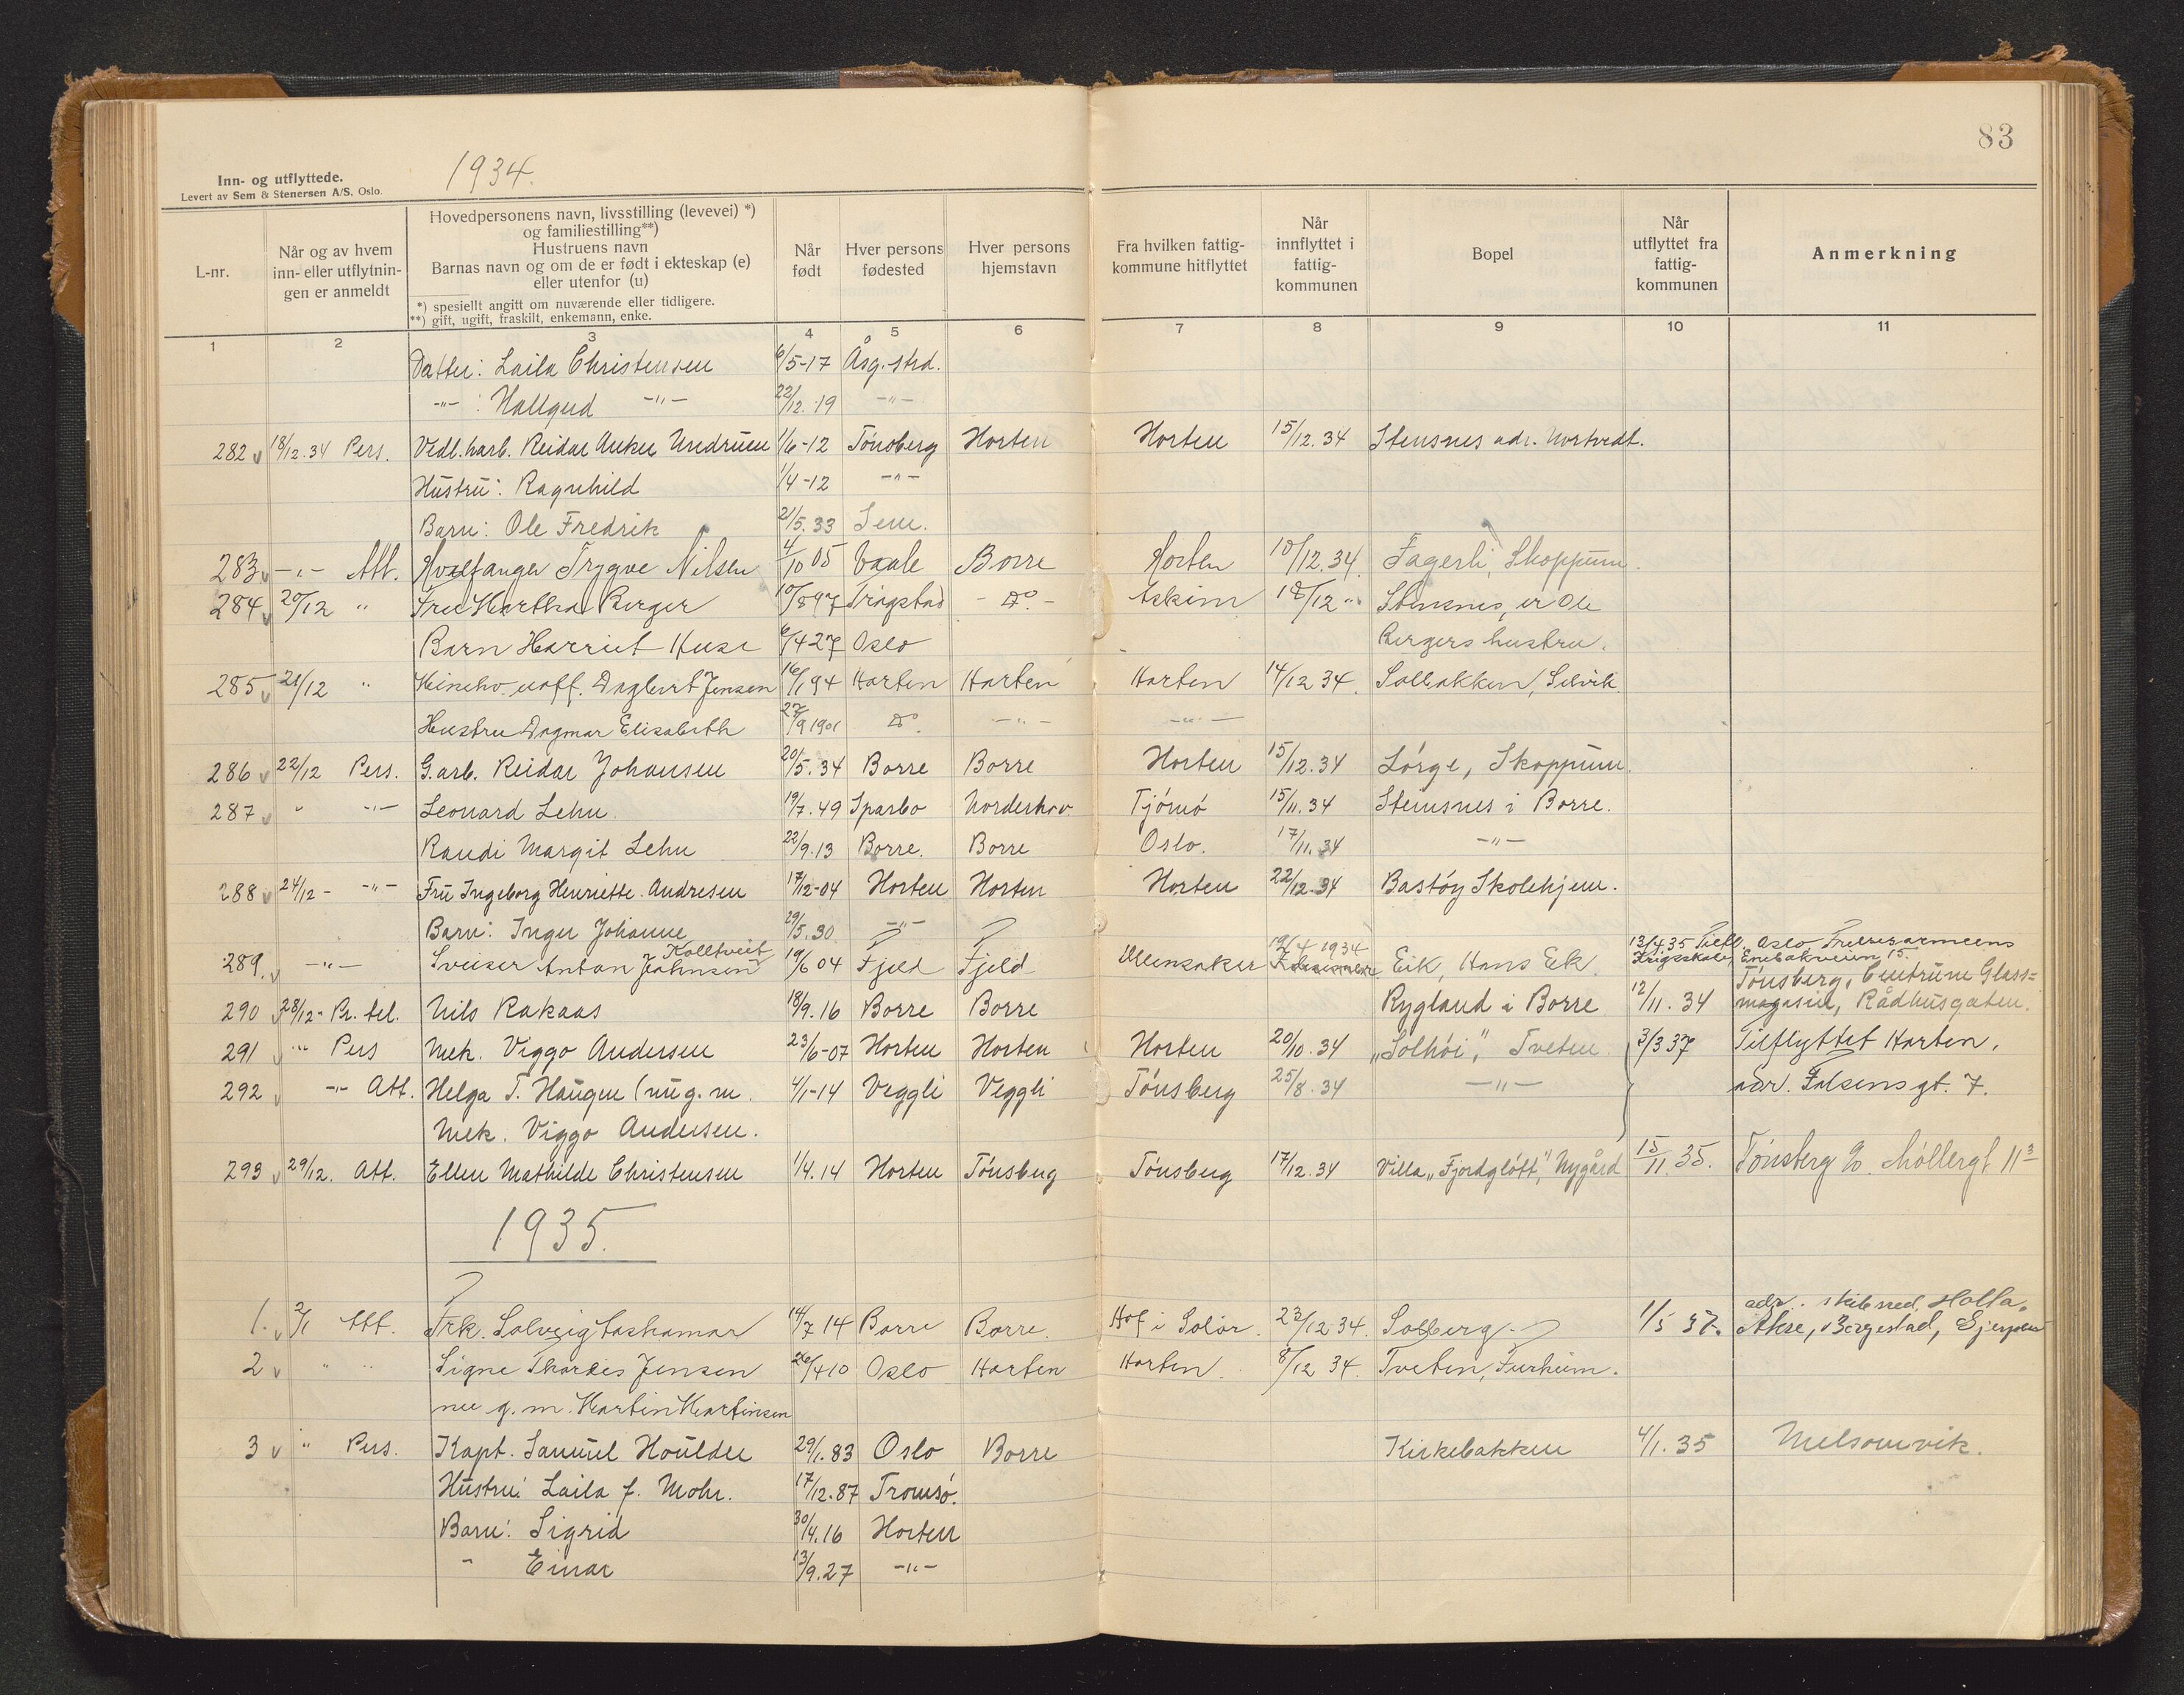 83
Inn- og utflyttede.
Levert av Sem & Stenersen A/S, Oslo.
1934.
L-nr.
Når og av hvem inn- eller utflytnin-gen er anmeldt
Hovedpersonens navn, livsstilling (levevei) *)
og familiestilling**)
Hustruens navn
Barnas navn og om de er født i ekteskap (e)
eller utenfor (u)
*) spesiellt angitt om nuværende eller tidligere.
**) gift, ugift, fraskilt, enkemann, enke.
Når født
Hver persons fødested
Hver persons hjemstavn
Fra hvilken fattig-kommune hitflyttet
Når innflyttet i fattig-kommunen
Bopel
Når utflyttet fra fattig-kommunen
Anmerkning
1 2 3 4 5 6 7 8 9 10 11
Datter: Laila Christensen 6/5-17 Åsg.strd.
-"- : Hallgud -"- 22/12.19 -"-
282 18/12.34 Pers. Vedl.harb. Reidar Anker Undrum 1/6-12 Tönsberg Horten Horten 15/12.34 Stensnes adr. Nortvedt.
Hustru: Ragnhild 1/4-12 -"-
Barn: Ole Fredrik 21/5.33 Sem.
283 -"- Att. Hvalfanger Trygve Nilsen 4/10 05 Vaale Borre Horten 10/12.34. Fagerli, Skoppum.
284 20/12 " Fru Hertha Berger 10/8 97 Trögstad - Do - Askim 18/12 -"- Stensnes, er Ole
Barn Harriet Huse 6/4 27 Oslo Bergers hustru.
285 21/12 " Dagbert Jensen 16/1 94 Horten Horten Horten 14/12 34. Solbakken, Selvik.
Hustru Dagmar Elisabeth 27/9 1901 Do -"- -"-
286 22/12 Pers. G.arb. Reidar Johansen 20/5.34 Borre Borre Horten 15/12.34 Lörge, Skoppum.
287 " -"- Leonard Lehn. 19/7.49 Sparbo Norderhov. Tjömö 15/11.34 Stensnes i Borre.
Randi Margit Lehn 22/9.13 Borre. Borre Oslo. 17/11.34 -"-
288 24/12- -"- Fru Ingeborg Henriette Andresen 17/12-04 Horten Horten Horten 22/12.34 Bastöy Skolehjem.
Barn: Inger Johanne 29/5.30 -"-
289. -"- Sveiser Anton Johnsen Kolltveit 19/6 04 Fjeld Fjeld Ullensaker 19/4 1934 Eik, Hans Eik. 13/4.35 Tilfl. Oslo,
Krigsskole, Enebakveien 15.
290 28/12- Pr. tel. Nils Rakaas 18/9.16 Borre Borre Rygland i Borre 12/11.34 Tönsberg, Centrum Glass=
magasin, Rådhusgaten.
291 -"- Pers Mek. Viggo Andersen 23/6-07 Horten Horten Horten 20/10.34 „Solhöi," Tveten 3/3 37 Tilflyttet Horten,
292 -"- Att. Helga T. Haugen (nu g. m. 4/1-14 Veggli Veggli Tönsberg 25/8.34 -"- adr. Falsens gt. 7.
Mek. Viggo Andersen.
293 29/12. Att. Ellen Mathilde Christensen 1/4.14 Horten Tönsberg Tönsberg 17/12.34 Villa „Fjordglött", Nygård 15/11.35. Tönsberg % Möllergt 11³
1935.
1. 2/1 Att. Frk. Solveig Laskamar 14/7 14 Borre Borre. Hof i Solör. 23/12 34. Solberg 1/5 37. adr. Holla,
Borgestad, Gjerpen
2 " " Signe Thordis Jensen 26/4 10 Oslo Horten Horten. 8/12 34. Tveten, Furheim.
nu g. m. Martin Martinsen
3 " Pers. Kapt. Samuel Houlder 29/1.83 Oslo Borre Kirkebakken 4/1.35 Melsomvik.
Hustru: Laila f. Mohr. 17/12.87 Tromsö.
Barn: Sigrid 30/4.16 Horten
" Einar 13/9.27 -"-